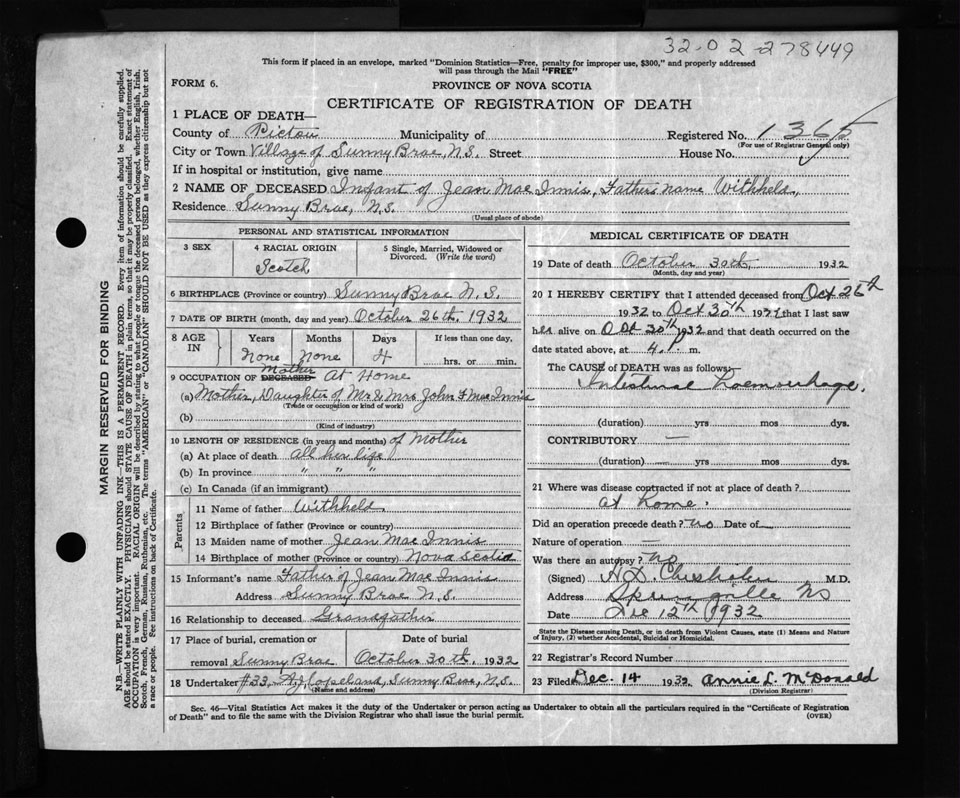 32-02-278449
This form if placed in an envelope, marked "Dominion Statistics—Free, penalty for improper use, $300," and properly addressed
will pass through the Mail "FREE"
FORM 6.
PROVINCE OF NOVA SCOTIA
CERTIFICATE OF REGISTRATION OF DEATH
1 PLACE OF DEATH—
County of Pictou Municipality of Registered No. 1365
(For use of Registrar General only)
City or Town Village of Sunny Brae, N.S. Street House No.
If in hospital or institution, give name
2 NAME OF DECEASED Infant of Jean Mac Innis, Fathers name Withheld,
Residence Sunny Brae, N.S.
(Usual place of abode)
PERSONAL AND STATISTICAL INFORMATION
3 SEX
4 RACIAL ORIGIN
Scotch
5 Single, Married, Widowed or
Divorced. (Write the word)
6 BIRTHPLACE (Province or country) Sunny Brae N.S.
7 DATE OF BIRTH (month, day and year) October 26th. 1932
8 AGE IN
Years Months Days If less than one day,
None None 4 hrs. or min.
9 OCCUPATION OF DECEASED Mother At Home
(a) Mother, Daughter of Mr & Mrs John F Mac Innis
(Trade or occupation or kind of work)
(b)
(Kind of industry)
10 LENGTH OF RESIDENCE (in years and months) of Mother
(a) At place of death all her life
(b) In province " " "
(c) In Canada (if an immigrant)
Parents
11 Name of father Withheld
12 Birthplace of father (Province or country)
13 Maiden name of mother Jean Mac Innis
14 Birthplace of mother (Province or country) Nova Scotia
15 Informant's name Father of Jean Mac Innis
Address Sunny Brae N.S.
16 Relationship to deceased Grandfather
17 Place of burial, cremation or Date of burial
removal Sunny Brae October 30th. 1932
18 Undertaker #33, A.J. Copeland, Sunny Brae, N.S.
(Name and address)
MEDICAL CERTIFICATE OF DEATH
19 Date of death October 30th 1932
(Month, day and year)
20 I HEREBY CERTIFY that I attended deceased from Oct 26th
1932 to Oct 30th 1932 that I last saw
h alive on Oct 30th 1932 and that death occurred on
date stated above, at 4. P. m.
The CAUSE of DEATH was as follows:
Intestinal haemorrhage.
(duration) yrs mos dys.
CONTRIBUTORY —
(duration) yrs. mos. dys.
21 Where was disease contracted if not at place of death?
at home.
Did an operation precede death? no Date of
Nature of operation —
Was there an autopsy? no
(Signed) H.D. Chisholm M.D.
Address Springville NS
Date Dec 12th 1932
State the Disease causing Death, or in death from Violent Causes, state (1) Means and Nature
of Injury, (2) whether Accidental, Suicidal or Homicidal.
22 Registrar's Record Number
23 Filed Dec. 14 1932 Annie L. McDonald
(Division Registrar)
Sec. 46—Vital Statistics Act makes it the duty of the Undertaker or person acting as Undertaker to obtain all the particulars required in the "Certificate of Registration
of Death" and to file the same with the Division Registrar who shall issue the burial permit. (OVER)
MARGIN RESERVED FOR BINDING
N.B.—WRITE PLAINLY WITH UNFADING INK—THIS IS A PERMANENT RECORD. Every item of information should be carefully supplied.
AGE should be stated EXACTLY. PHYSICIANS should STATE CAUSE OF DEATH in plain terms, so that it may be properly classified. Exact statement of
OCCUPATION is very important. RACIAL ORIGIN will be described by stating to what people or tongue the deceased person belonged, whether English, Irish,
Scotch, French, German, Russian, Ruthenian, etc. The terms "AMERICAN" or "CANADIAN" SHOULD NOT BE USED as they express citizenship but not
a race or people. See instructions on back of Certificate.